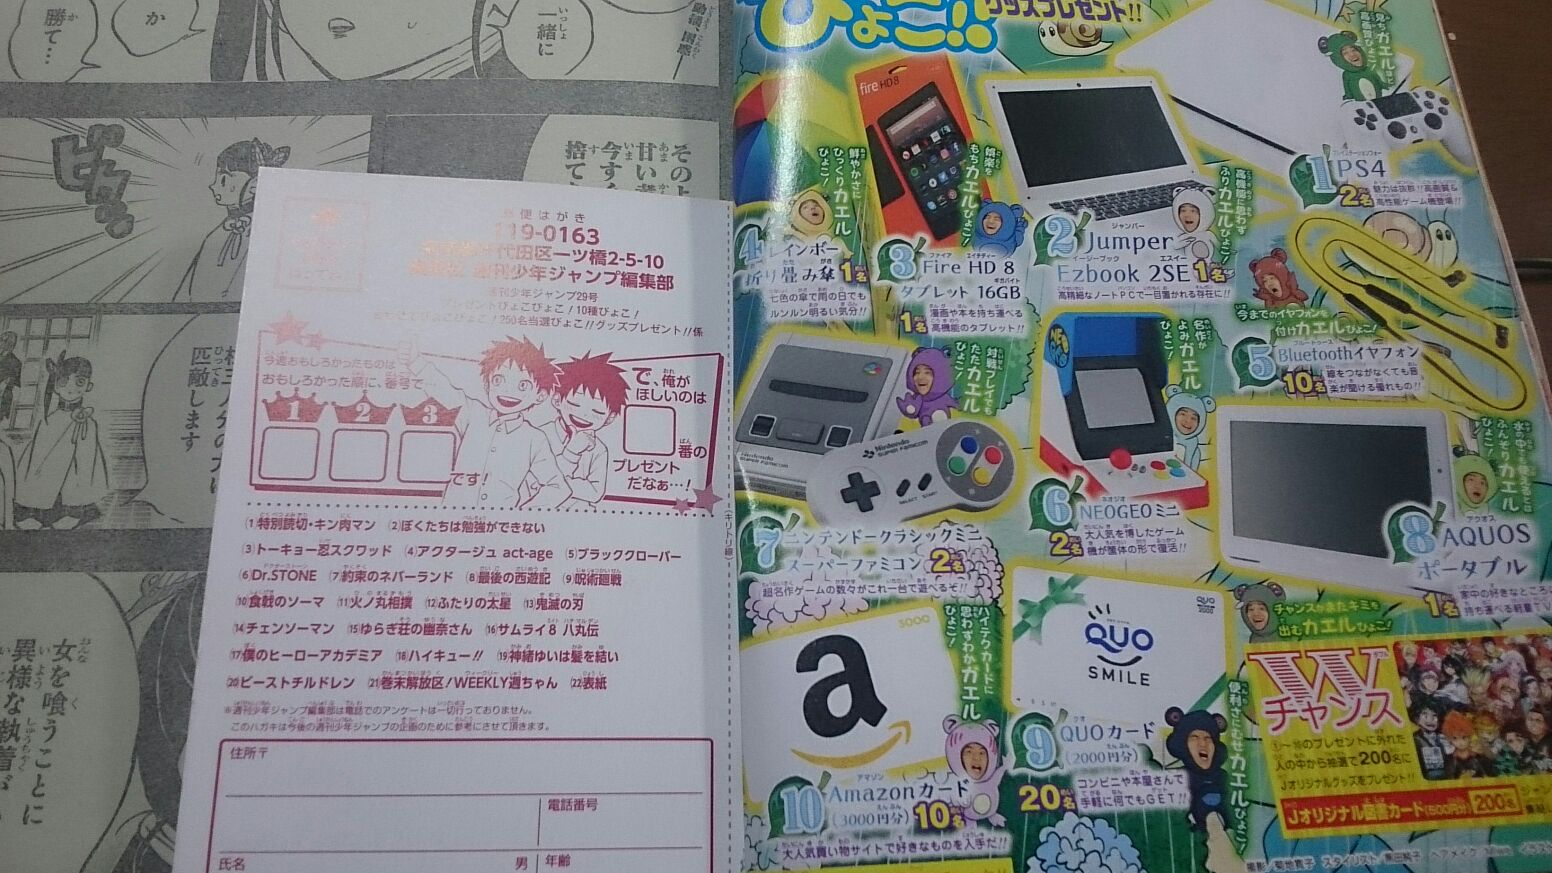 一緒に
か
勝て…
捨て
匹敵します
女を喰うことに
異様な執着が
郵便はがき
119-0163
千代田区一ツ橋2-5-10
週刊少年ジャンプ編集部
週刊少年ジャンプ29号
250名当選ぴょこ!!グッズプレゼント!!係
今週おもしろかったものは
おもしろかった順に、番号で…
1 2 3
です!
で、俺が
ほしいのは
番の
プレゼント
だなぁ…!
(キリトリ線)
①特別読切・キン肉マン ②ぼくたちは勉強ができない
③トーキョー忍スクワッド ④アクタージュ act-age ⑤ブラッククローバー
⑥Dr.STONE ⑦約束のネバーランド ⑧最後の西遊記 ⑨呪術廻戦
⑩食戟のソーマ ⑪火ノ丸相撲 ⑫ふたりの太星 ⑬鬼滅の刃
⑭チェンソーマン ⑮ゆらぎ荘の幽奈さん ⑯サムライ8 八丸伝
⑰僕のヒーローアカデミア ⑱ハイキュー!! ⑲神緒ゆいは髪を結い
⑳ビーストチルドレン ㉑巻末解放区!WEEKLY週ちゃん ㉒表紙
※週刊少年ジャンプ編集部は電話でのアンケートは一切行っておりません。
このハガキは今後の週刊少年ジャンプの企画のために参考にさせて頂きます。
住所〒
電話番号
氏名 男 年齢
ぴょこ!!
グッズプレゼント!!
1 PS4
2名
魅力は抜群!!高画質&
高性能ゲーム機登場!!
高機能に思わず
ふりカエルぴょこ!
2 Jumper
Ezbook 2SE 1名
高精細なノートPCで一目置かれる存在に!!
fire HD 8
娯楽を
もちカエルぴょこ!
3 Fire HD 8
タブレット 16GB
1名
漫画や本を持ち運べる
高機能のタブレット!!
鮮やかさに
ひっくりカエル
ぴょこ!
4 レインボー
折り畳み傘 1名
七色の傘で雨の日でも
ルンルン明るい気分!!
今までのイヤフォンを
付けカエルぴょこ!
5 Bluetoothイヤフォン
10名
線をつながなくても音
楽が聞ける優れもの!!
名作が
よみガエル
ぴょこ!
6 NEOGEO ミニ
2名
大人気を博したゲーム
機が筐体の形で復活!!
対戦プレイでも
たたカエル
ぴょこ!
Nintendo
SUPER FAMICOM
Nintendo
SUPER FAMICOM
SELECT START
7 ニンテンドークラシックミニ
スーパーファミコン 2名
超名作ゲームの数々がこれ一台で遊べるぞ!!
8 AQUOS
ポータブル
1名
家中の好きなところに
持ち運べる軽量TV
便利さにむせカエルぴょこ!
QUO
SMILE
9 QUOカード
(2000円分)
20名
コンビニや本屋さんで
手軽に何でもGET!!
ハイテクカードに
思わずわカエル
ぴょこ!
3000
a
10 Amazonカード
(3000円分) 10名
大人気買い物サイトで好きなものを入手だ!!
チャンスがまたキミを
出むカエルぴょこ!
Wチャンス
①~⑩のプレゼントに外れた
人の中から抽選で200名に
Jオリジナルグッズをプレゼント!!
Jオリジナル図書カード(500円分) 200名